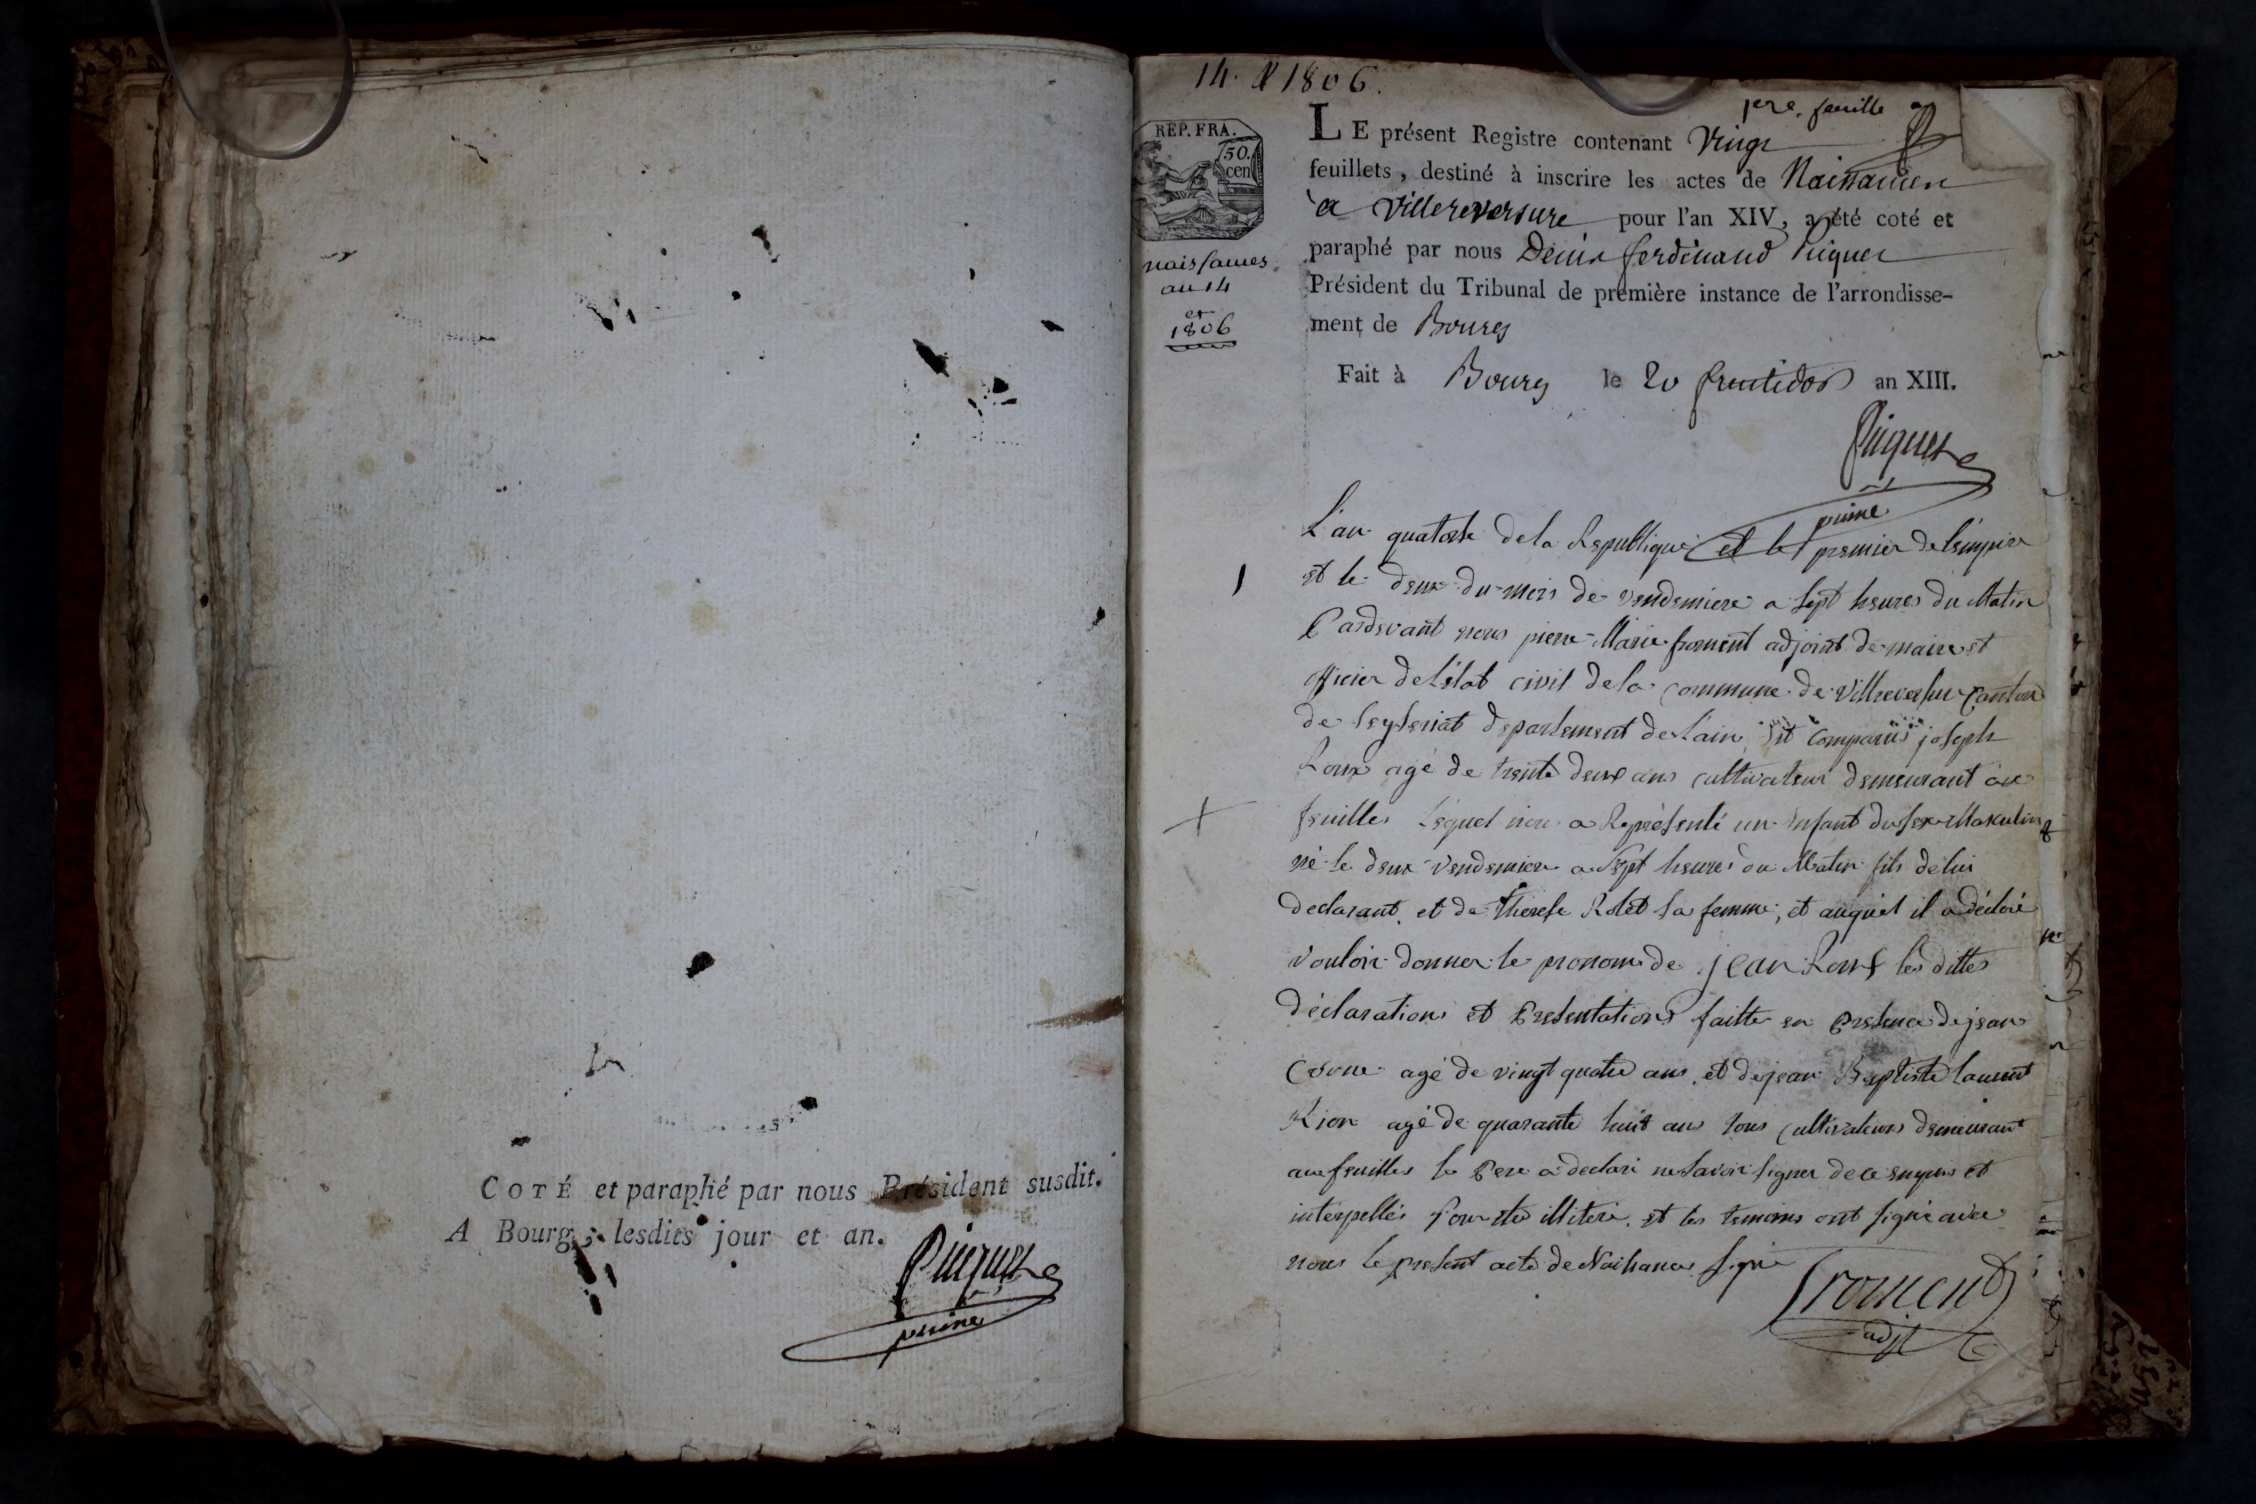 COTÉ et paraphé par nous Président susdit.
A Bourg, lesdits jour et an.
Puiguet
puiné
14. & 1806.
REP. FRA.
50.
cen
naissances
an 14
et
1806
1ere. feuille
LE présent Registre contenant Vingt
feuillets, destiné à inscrire les actes de Naissances
a Villereversure pour l'an XIV, a été coté et
paraphé par nous Denis ferdinand
Président du Tribunal de première instance de l'arrondisse-
ment de Bourg
Fait à Bourg le 20 fructidor an XIII.
Puiguet
puiné
L'an quatorze de la Republique et le premier de l'empire
1
et le deux du mois de vendemiere a sept heures du Matin
Pardevant nous pierre Marie froment adjoint de maire et
officier de l'etat civil de la commune de Villreversure Canton
de Seyseriat departement de l'ain est comparus joseph
Roux agé de trente deux ans cultivateur demeurant au
feuilles lequel nous a Representé un enfant du sexe Maskulin
né le deux vendemiere a sept heures du Matin fils de lui
declarant, et de therese Rolet sa femme, et auquel il a déclaré
vouloir donner le pronom de jean Roux les dittes
déclarations et Presentations faitte en Presence de jean
agé de vingt quatre ans, et de jean Baptiste laurent
agé de quarante huit ans tous cultivateurs demeurant
au feuilles le Pere a declaré ne savoir signer de ce enquis et
interpellés et les temoins ont signé avec
nous le present acte de Naissance signé
froment
adjt